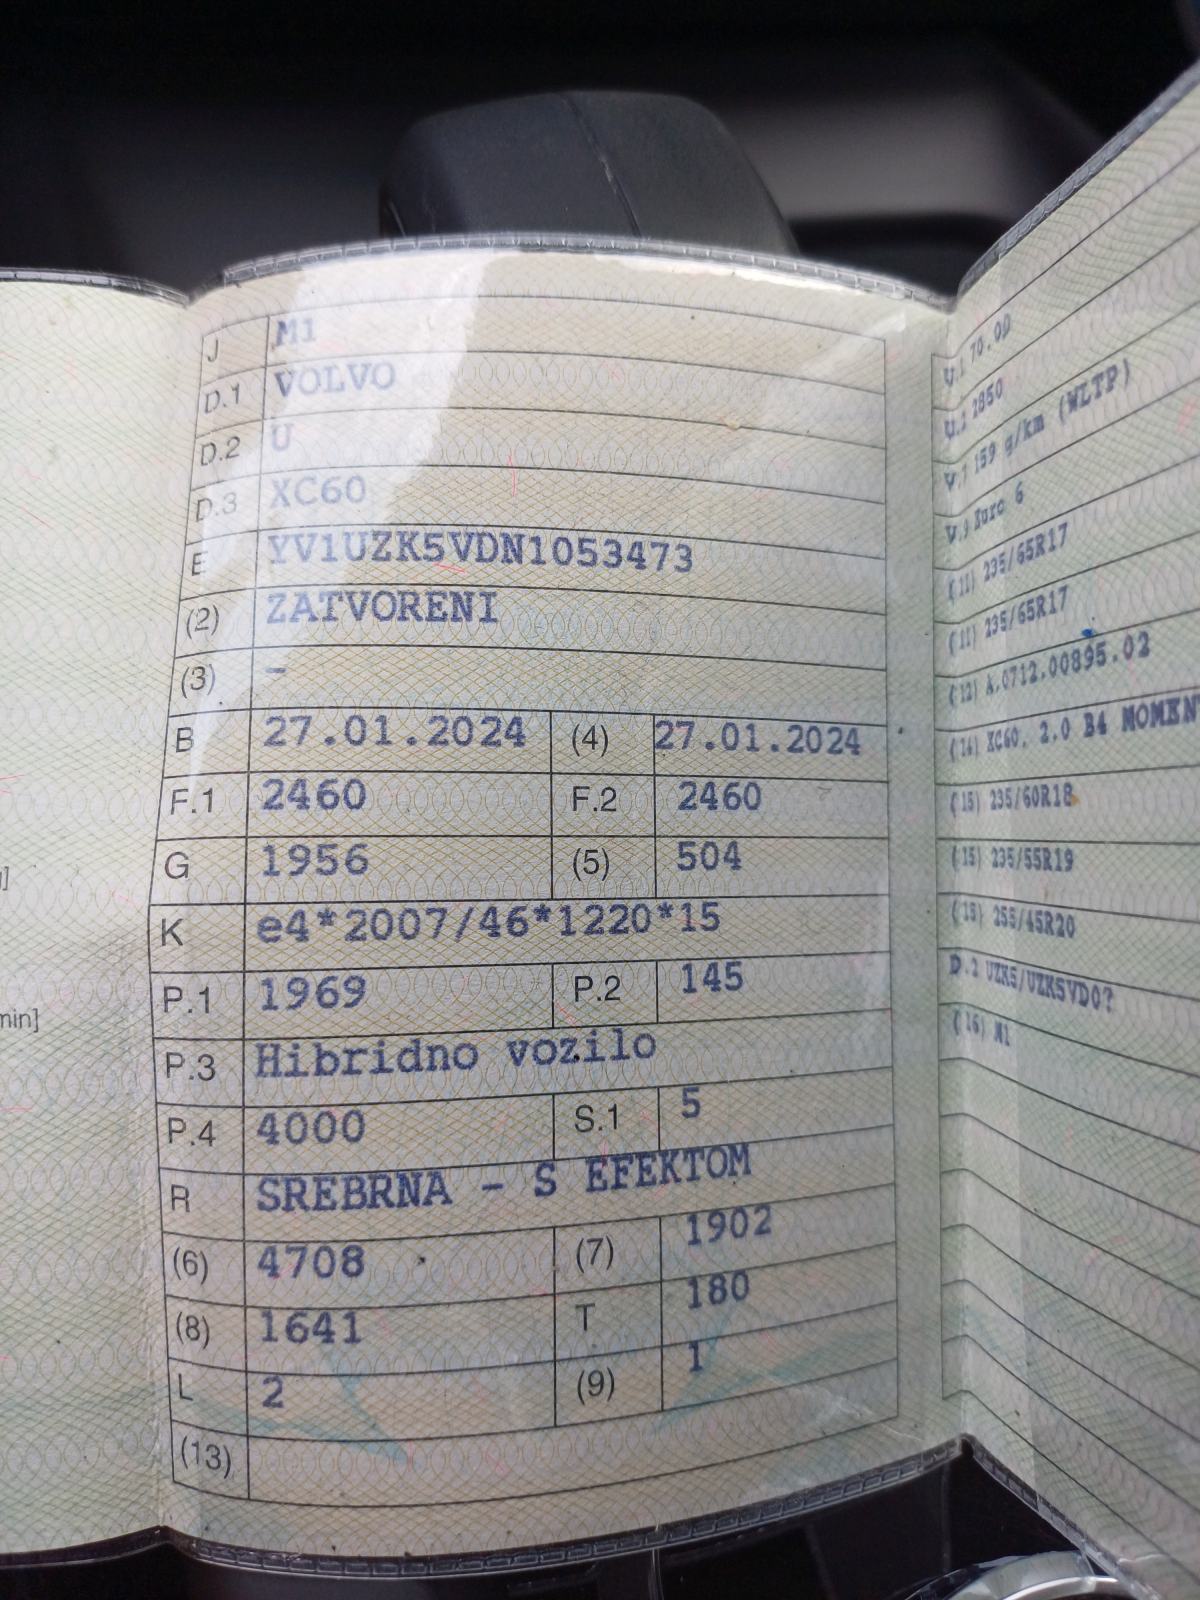 J M1
D.1 VOLVO
D.2 U
D.3 XC60
E YV1UZK5VDN1053473
(2) ZATVORENI
(3) -
B 27.01.2024 (4) 27.01.2024
F.1 2460 F.2 2460
G 1956 (5) 504
K e4*2007/46*1220*15
P.1 1969 P.2 145
P.3 Hibridno vozilo
P.4 4000 S.1 5
R SREBRNA - S EFEKTOM
(6) 4708 (7) 1902
(8) 1641 T 180
L 2 (9) 1
(13)
]
min]
U.1 70.00
U.2 2850
V.7 159 g/km (WLTP)
V.9 Euro 6
(11) 235/65R17
(11) 235/65R17
(12) A.0712.00895.02
(14) XC60, 2.0 B4 MOMENT
(15) 235/60R18
(15) 235/55R19
(15) 255/45R20
D.2 UZK5/UZK5VD0?
(16) M1